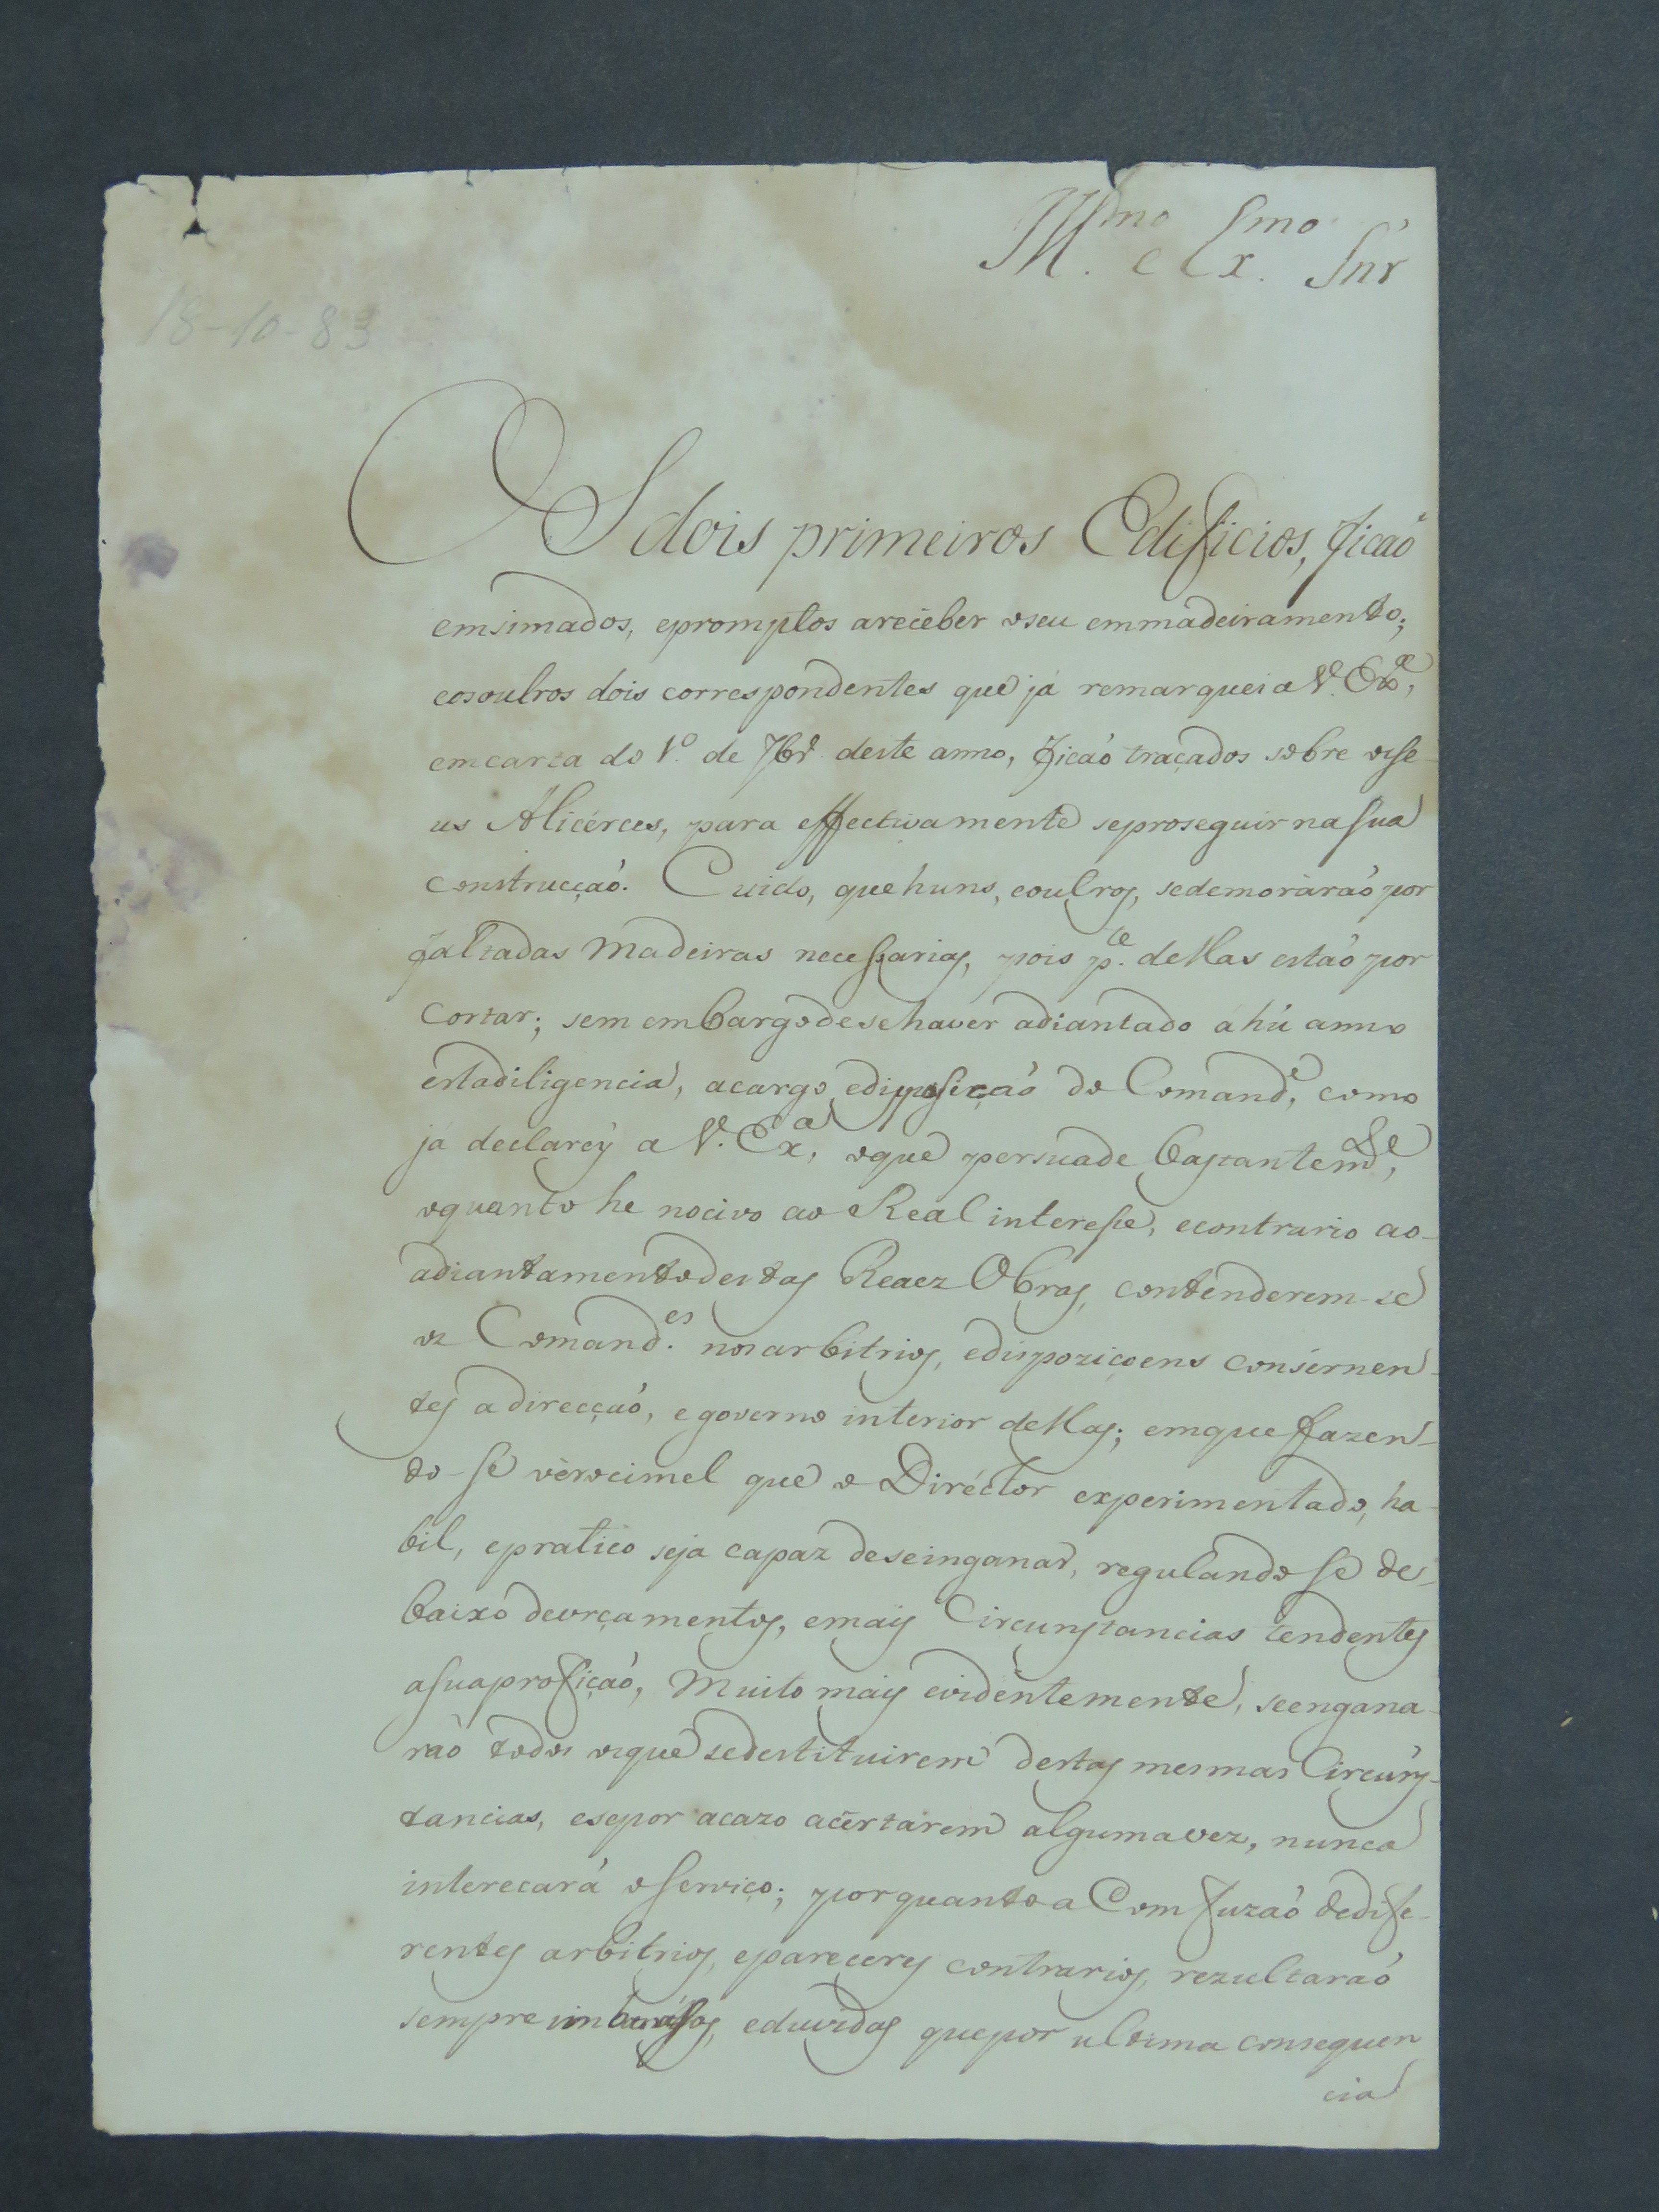 Ill.mo e Ex.mo Snr
18-10-83
OS dois primeiros Edificios, ficaõ
emsimados, epromptos areceber oseu emmadeiramento;
eosoutros dois correspondentes que já remarquei a V. Ex.ª,
emcarta do 1.º de 7br.º deste anno, ficaó traçados sobre osse-
us Alicérces, para effectivamente seproseguir na sua
construcçaó. Cuido, que huns, eoutros, sedemoràraó por
faltadas Madeiras necessarias, pois p.te dellas estaó por
Cortar; sem embargodesehaver adiantado ahú anno
estadiligencia, acargo, edisposiçaó do Comand.e, como
já declarey a V. Ex.ª, oque persuade bastantem.de,
oquanto he nocivo ao Real interesse, econtrario ao-
adiantamentodestas Reaez Obras, contenderem-se
oz Comand.es nosarbitrios, edispoziçoens consérnen-
tes adirecçaó, egoverno interior dellas; emque fazen-
do-se vèrocimel que o Diréctor experimentado, ha-
bil, epratico seja capaz deseinganar, regulando se de-
baixo deorçamentos, emais Circunstancias tendentes
asuaprofiçaó, Muito mais evidentemente, seengana-
raò todos osque sedestituirem destas mesmas Circuns-
tancias, esepor acazo acertarem algumavez, nunca
interecará oserviço; porquanto a Comfuzaó dedife-
rentes arbitrios, epareceres contrarios, rezultaraó
sempre imbarassos, eduvidas quepor ultima consequen
cia